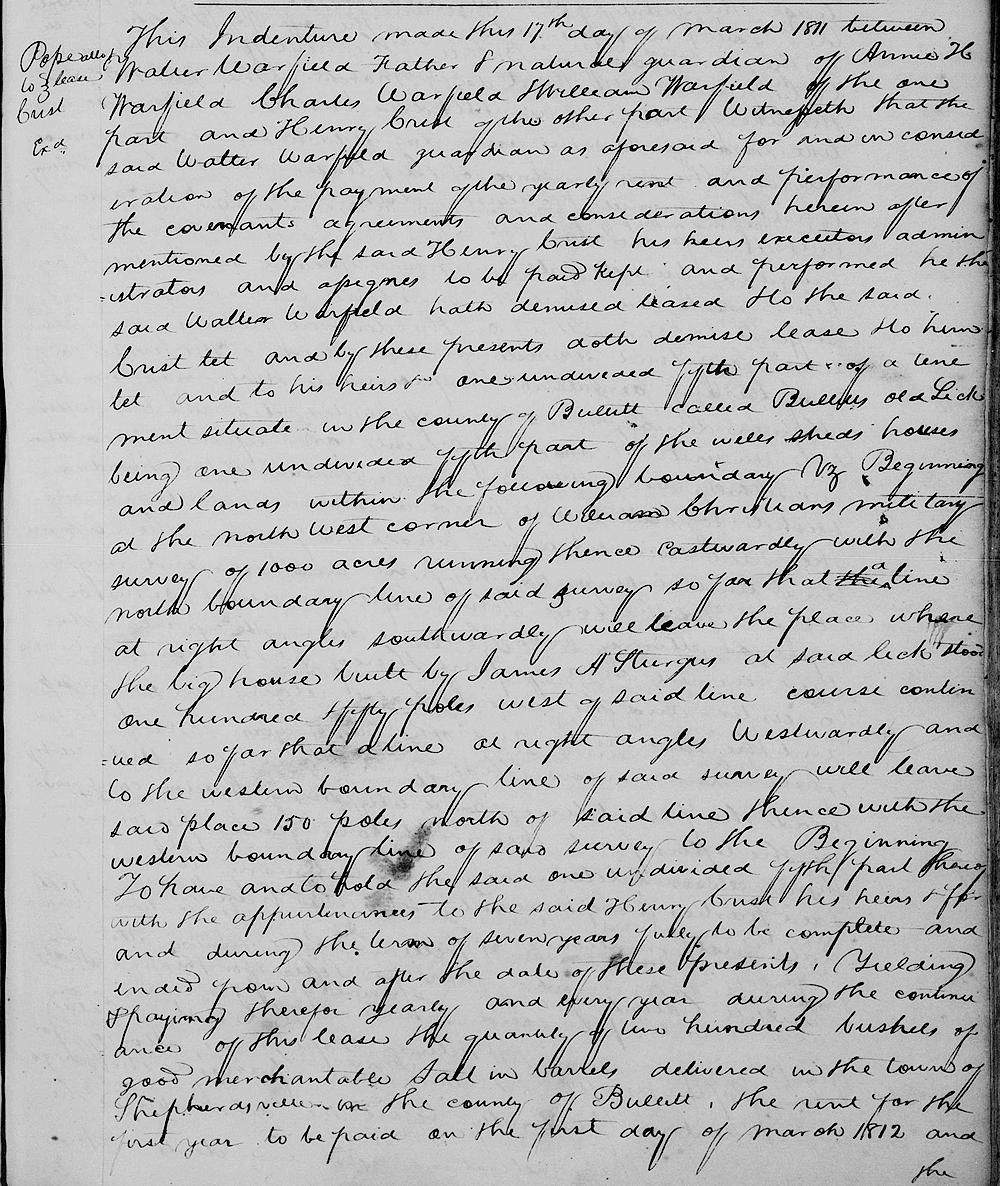 Pope atto fr
to } lease
Crist
Exd.
This Indenture made this 17th day of march 1811 between
Walter Warfield Father & natural guardian of Annie H
Warfield Charles Warfield & William Warfield of the one
part and Henry Crist of the other part Witnesseth that the
said Walter Warfield guardian as aforesaid for and in consid
eration of the payment of the yearly rent and performance of
the covenants agreements and considerations herein after
mentioned by the said Henry Crist his heirs executors admin
=istrators and assignes to be paid kept and performed he the
said Walter Warfield hath demised leased & to the said
Crist let and by these presents doth demise lease & to him
let and to his heirs &c one undivided fifth part of a tene
ment situate in the county of Bullitt called Bullitts old Lick
being one undivided fifth part of the wells sheds houses
and lands within the following boundary Viz Beginning
at the north West corner of William Christians military
survey of 1000 acres running thence Eastwardly with the
north boundary line of said survey so far that the a line
at right angles southwardly will leave the place where
the big house built by James A Sturgus at said lick stood
one hundred & fifty poles west of said line course contin
=ued so far that a line at right angles Westwardly and
to the western boundary line of said survey will leave
said place 150 poles north of said line thence with the
western boundary line of said survey to the Beginning
To have and to hold the said one undivided fifth part thereof
with the appurtenances to the said Henry Crist his heirs & for
and during the term of seven years fully to be complete and
ended from and after the date of these presents, Yielding
& paying therefor yearly and every year during the continu
ance of this lease the quantity of two hundred bushels of
good merchantable Salt in barrels delivered in the town of
Shepherdsville in the county of Bullitt, the rent for the
first year to be paid on the first day of march 1812 and
the